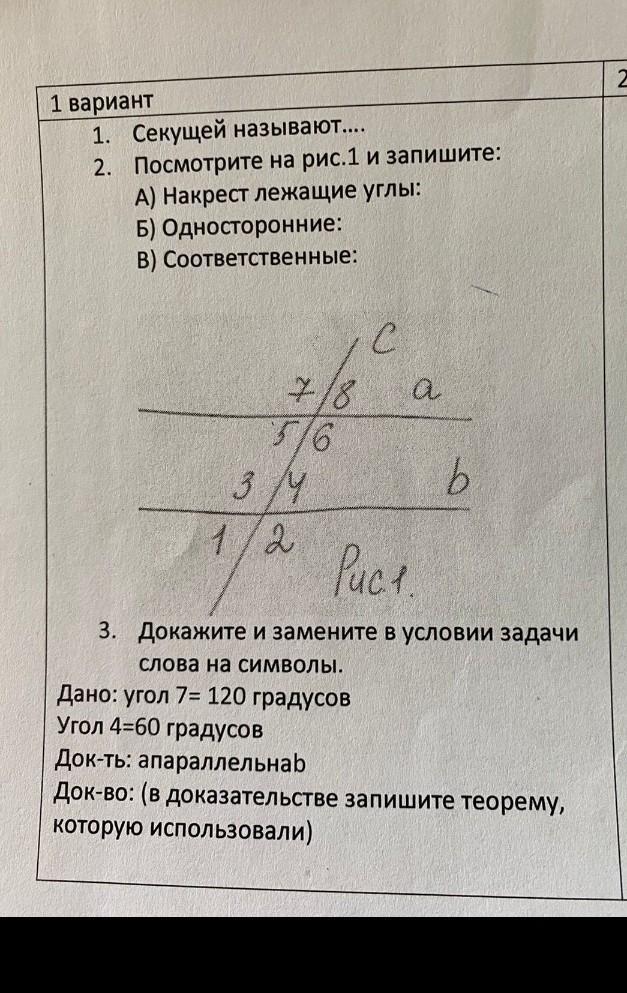 1 вариант
2
1. Секущей называют....
2. Посмотрите на рис.1 и запишите:
А) Накрест лежащие углы:
Б) Односторонние:
В) Соответственные:
c
7 8 a
5 6
3 4 b
1 2
Рис1.
3. Докажите и замените в условии задачи
слова на символы.
Дано: угол 7= 120 градусов
Угол 4=60 градусов
Док-ть: апараллельнаb
Док-во: (в доказательстве запишите теорему,
которую использовали)